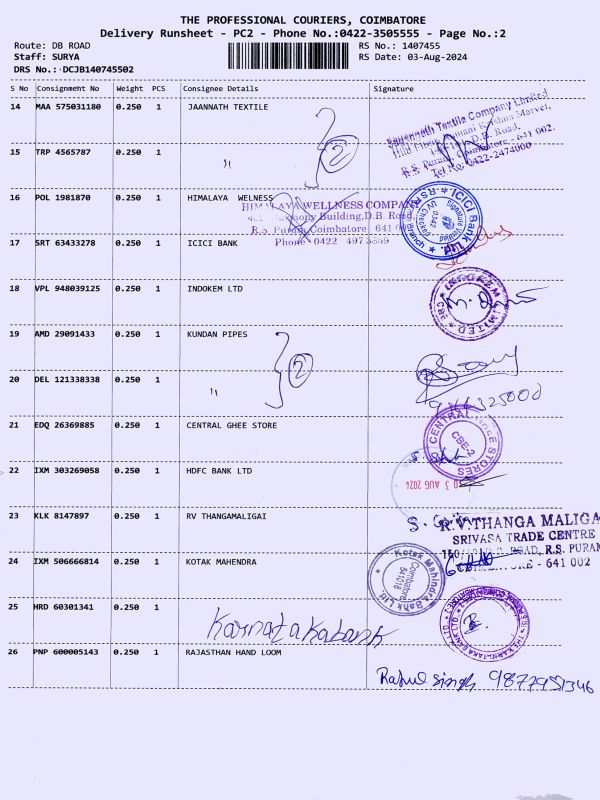 THE PROFESSIONAL COURIERS, COIMBATORE
Delivery Runsheet - PC2 - Phone No.:0422-3505555 - Page No.:2
Route: DB ROAD
Staff: SURYA
DRS No.: DCJB140745502
RS No.: 1407455
RS Date: 03-Aug-2024
S No Consignment No Weight PCS Consignee Details Signature
14 MAA 575031180 0.250 1 JAANNATH TEXTILE
Jagannath Textile Company Limited
D.B. Road,
R.S. Puram, Coimbatore - 641 002.
Tel No: 0422-2474000
15 TRP 4565787 0.250 1 "
2
16 POL 1981870 0.250 1 HIMALAYA WELNESS
HIMALAYA WELLNESS COMPANY
Building, D.B. Road
R.S. Puram, Coimbatore 641
Phone 0422
ICICI Bank Ltd.
Signature Verified
17 SRT 63433278 0.250 1 ICICI BANK
18 VPL 948039125 0.250 1 INDOKEM LTD
INDOKEM LIMITED
CBE
19 AMD 29091433 0.250 1 KUNDAN PIPES
2
20 DEL 121338338 0.250 1 "
21 EDQ 26369885 0.250 1 CENTRAL GHEE STORE
CENTRAL STORES
CBE-2
22 IXM 303269058 0.250 1 HDFC BANK LTD
03 AUG 2024
23 KLK 8147897 0.250 1 RV THANGAMALIGAI
R.V.THANGA MALIGA
SRIVASA TRADE CENTRE
ROAD, R.S. PURAM
- 641 002
24 IXM 506666814 0.250 1 KOTAK MAHENDRA
Kotak Mahindra Bank Ltd
Coimbatore
641018
25 HRD 60301341 0.250 1
Karnataka bank
THE KARNATAKA BANK LTD
26 PNP 600005143 0.250 1 RAJASTHAN HAND LOOM
Rahul Singh